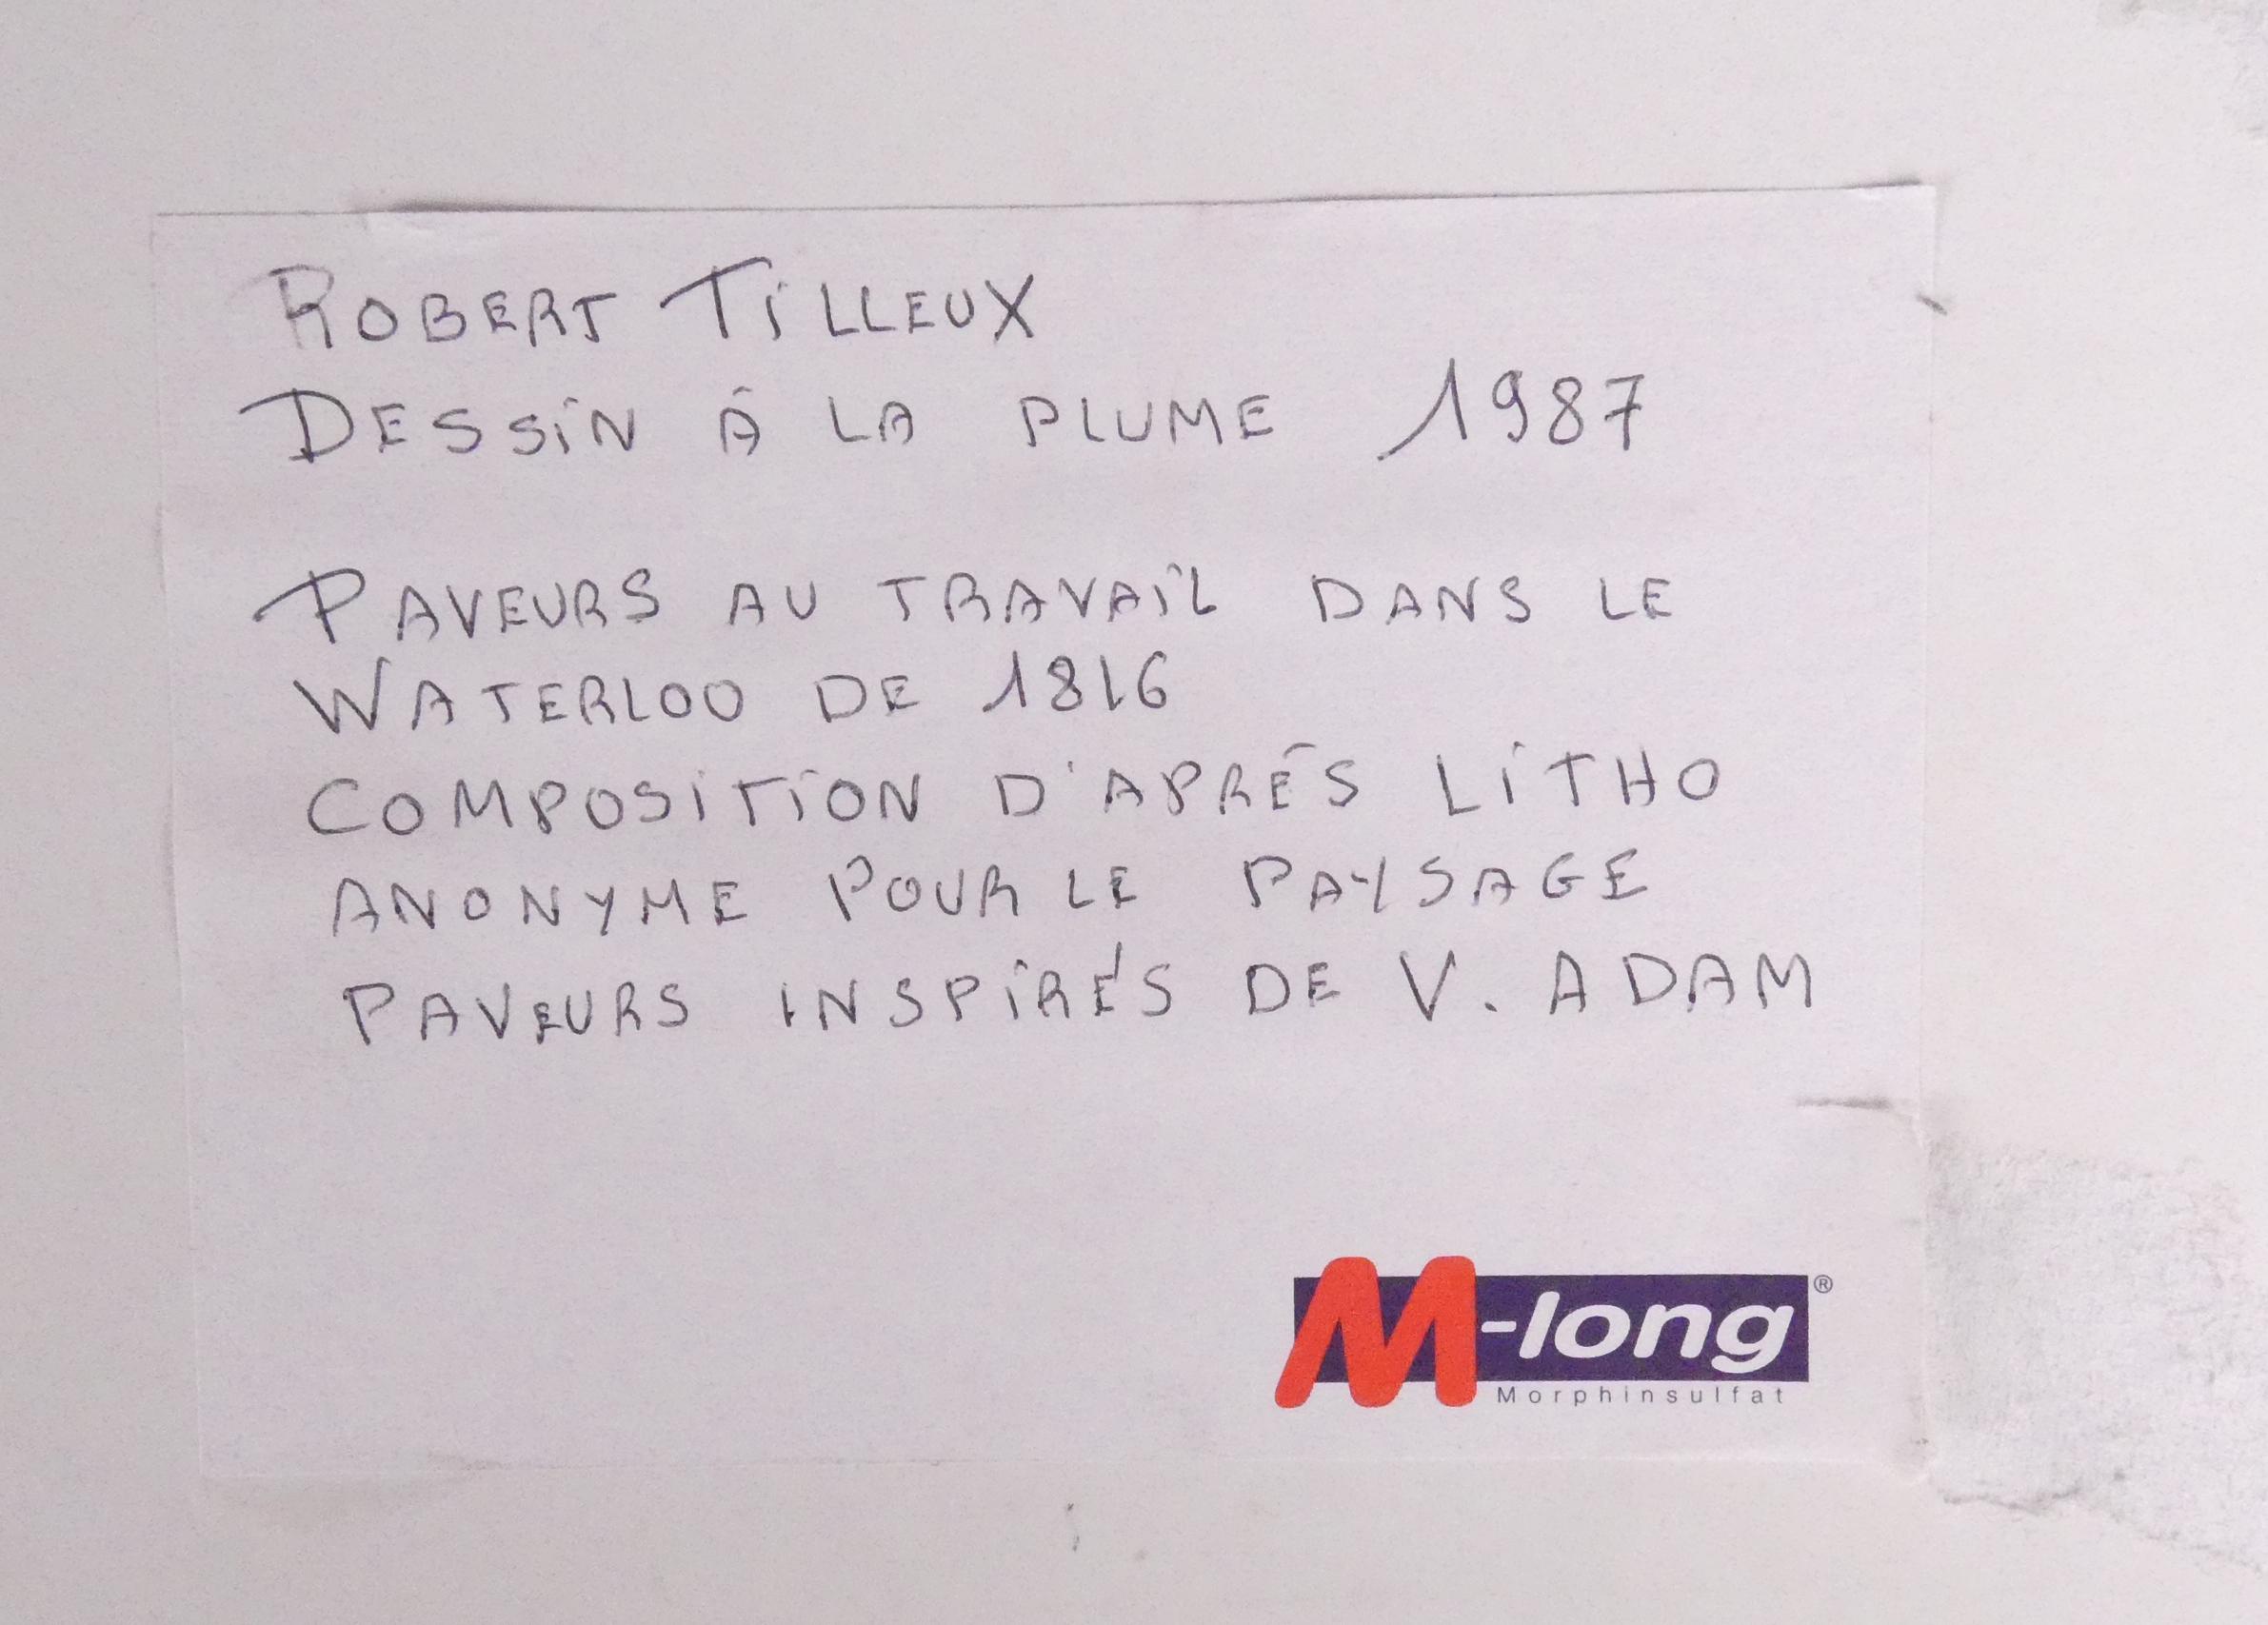 ROBERT TILLEUX
DESSIN À LA PLUME 1987
PAVEURS AU TRAVAIL DANS LE
WATERLOO DE 1816
COMPOSITION D'APRÉS LITHO
ANONYME POUR LE PAYSAGE
PAVEURS INSPIRÉS DE V. ADAM
M-long®
Morphinsulfat